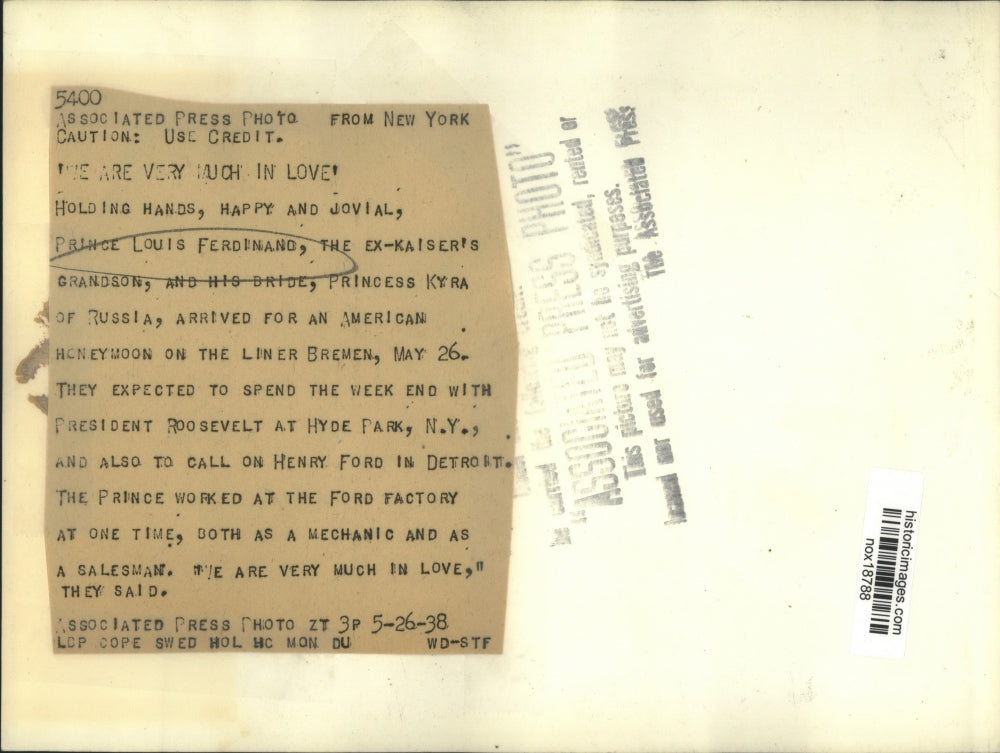 5400
ASSOCIATED PRESS PHOTO FROM NEW YORK
CAUTION: USE CREDIT.
'WE ARE VERY MUCH IN LOVE'
HOLDING HANDS, HAPPY AND JOVIAL,
PRINCE LOUIS FERDINAND, THE EX-KAISER'S
GRANDSON, AND HIS BRIDE, PRINCESS KYRA
OF RUSSIA, ARRIVED FOR AN AMERICAN
HONEYMOON ON THE LINER BREMEN, MAY 26.
THEY EXPECTED TO SPEND THE WEEK END WITH
PRESIDENT ROOSEVELT AT HYDE PARK, N.Y.,
AND ALSO TO CALL ON HENRY FORD IN DETROIT.
THE PRINCE WORKED AT THE FORD FACTORY
AT ONE TIME, BOTH AS A MECHANIC AND AS
A SALESMAN. "WE ARE VERY MUCH IN LOVE,"
THEY SAID.
ASSOCIATED PRESS PHOTO ZT 3P 5-26-38
LCP COPE SWED HOL HC MON DU WD-STF
"ASSOCIATED PRESS PHOTO"
This picture may not be syndicated, rented or
loaned nor used for advertising purposes.
The Associated Press
historicimages.com
nox18788